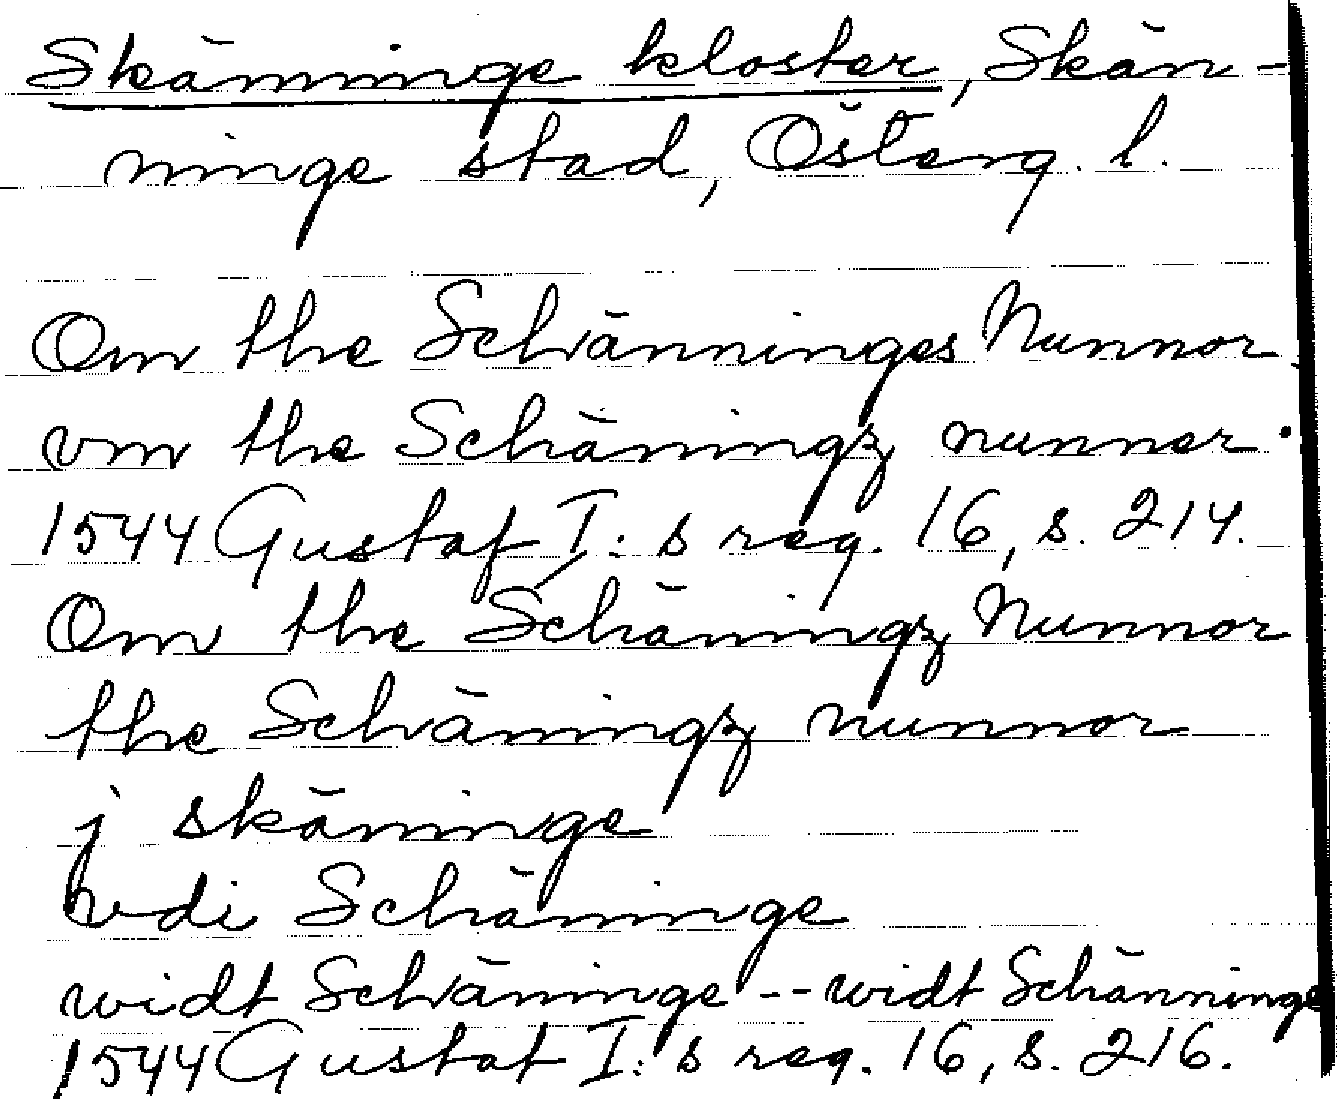 Skänninge kloster, Skän-
ninge stad, Österg. l.
Om the Schänninges Nunnor
vm the Schäningz nunner.
1544 Gustaf I:s reg. 16, s. 214.
Om the Schäningz Nunnor
the Schäningz nunnor
j skäninge
vdi Schäninge
widt Schäninge -- widt Schänninge
1544 Gustaf I:s reg. 16, s. 216.